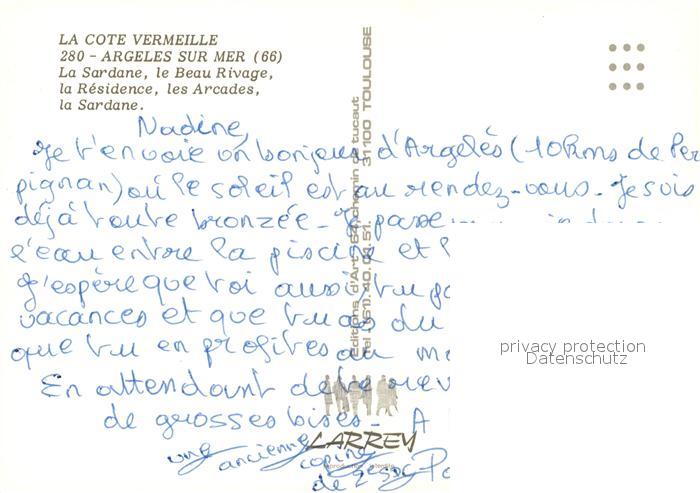 LA COTE VERMEILLE
280 - ARGELES SUR MER (66)
La Sardane, le Beau Rivage,
la Résidence, les Arcades,
la Sardane.
Nadine,
Je t'envoie un bonjour d'Argelès (10kms de Per
pignan) où le soleil est au rendez-vous. Je suis
déjà toute bronzée. Je passe
l'eau entre la piscine et l
J'espère que toi aussi, tu pa
vacances et que tu as du
que tu en profites au ma
En attendant de te rev
de grosses bises. A
une ancienne copine
de
Editions d'Art 64, chemin de tucaut
31100 TOULOUSE
Tél. (61).40.04.51.
LARREY
reproduction interdite
privacy protection
Datenschutz